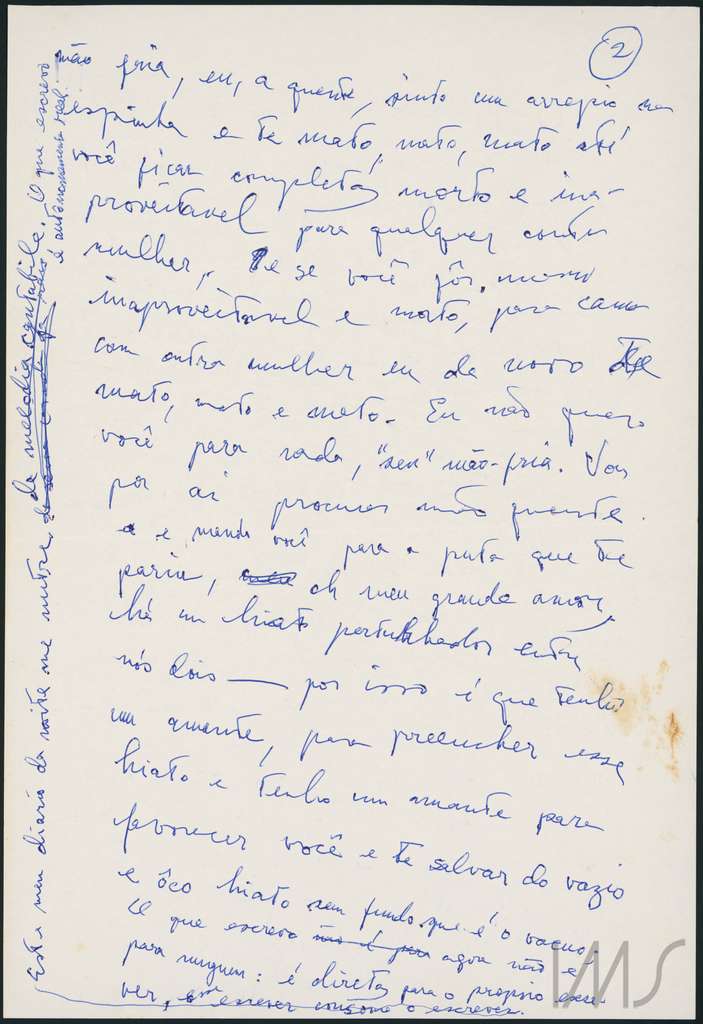 2
mão fria, eu, a quente, sinto um arrepio na
espinha e te mato, mato, mato até
você ficar completa/ morto e ina-
proveitavel para qualquer outra
mulher. E se você fôr, mesmo
inaproveitavel e morto, para cama
com outra mulher eu de novo te
mato, mato e mato. Eu não quero
você para nada, "seu" mão-fria. Vou
por aí procurar mão quente.
e mando você para a puta que te
pariu, oh meu grande amor,
há um hiato perturbador entre
nós dois — por isso é que tenho
um amante, para preencher esse
hiato e tenho um amante para
favorecer você e te salvar do vazio
e ôco hiato sem fundo que é o vacuo.
O que escrevo agora não é
para ninguem: é direta/ para o proprio escre-
ver, esse escrever o escrever.
Este meu diario da noite me nutre da melodia cantabile. O que escrevo
é autonomamente real.
IMS